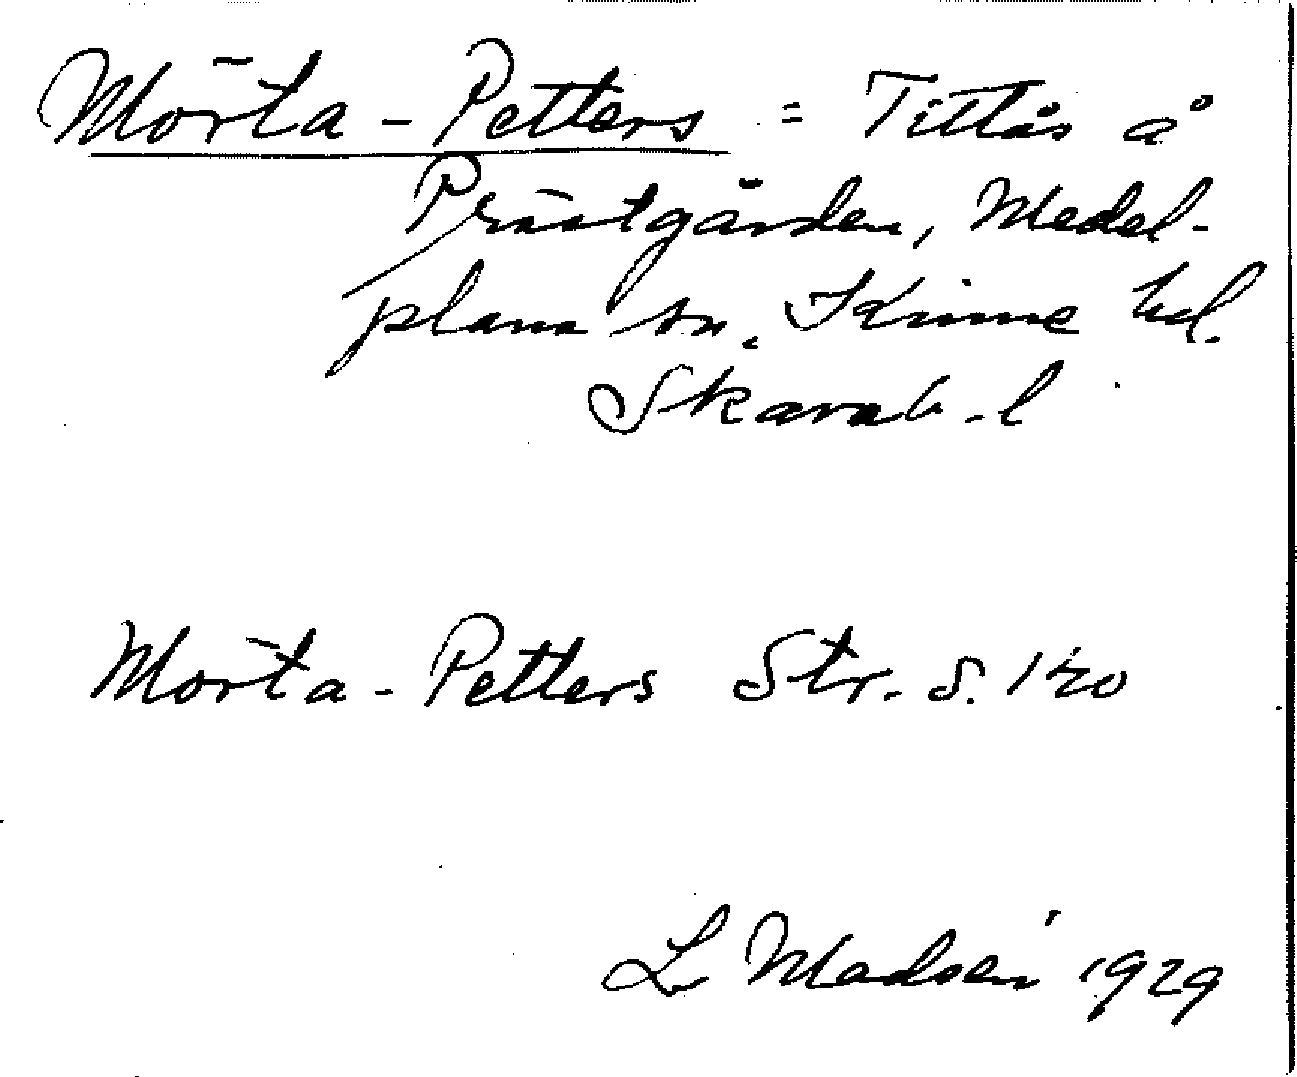 Mörta-Petters = Tittås å
Prästgården, Medel-
plana sn. Kinne hd.
Skarab. l
Mörta-Petters Str. S. 120
L Madsén 1929